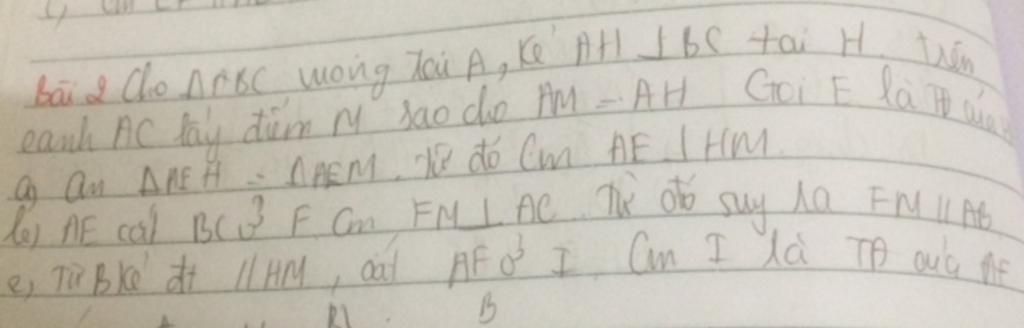 Bài 2 Cho ΔABC vuông tại A, kẻ AH ⊥ BC tại H trên
cạnh AC lấy điểm M sao cho AM = AH Gọi E là TĐ của
a) Cm ΔAEH = ΔAEM. Từ đó Cm AE ⊥ HM
b) AE cắt BC ở F Cm FM ⊥ AC. Từ đó suy ra FM // AB
c) Từ B kẻ đt // HM, cắt AF ở I. Cm I là TĐ của AF
B